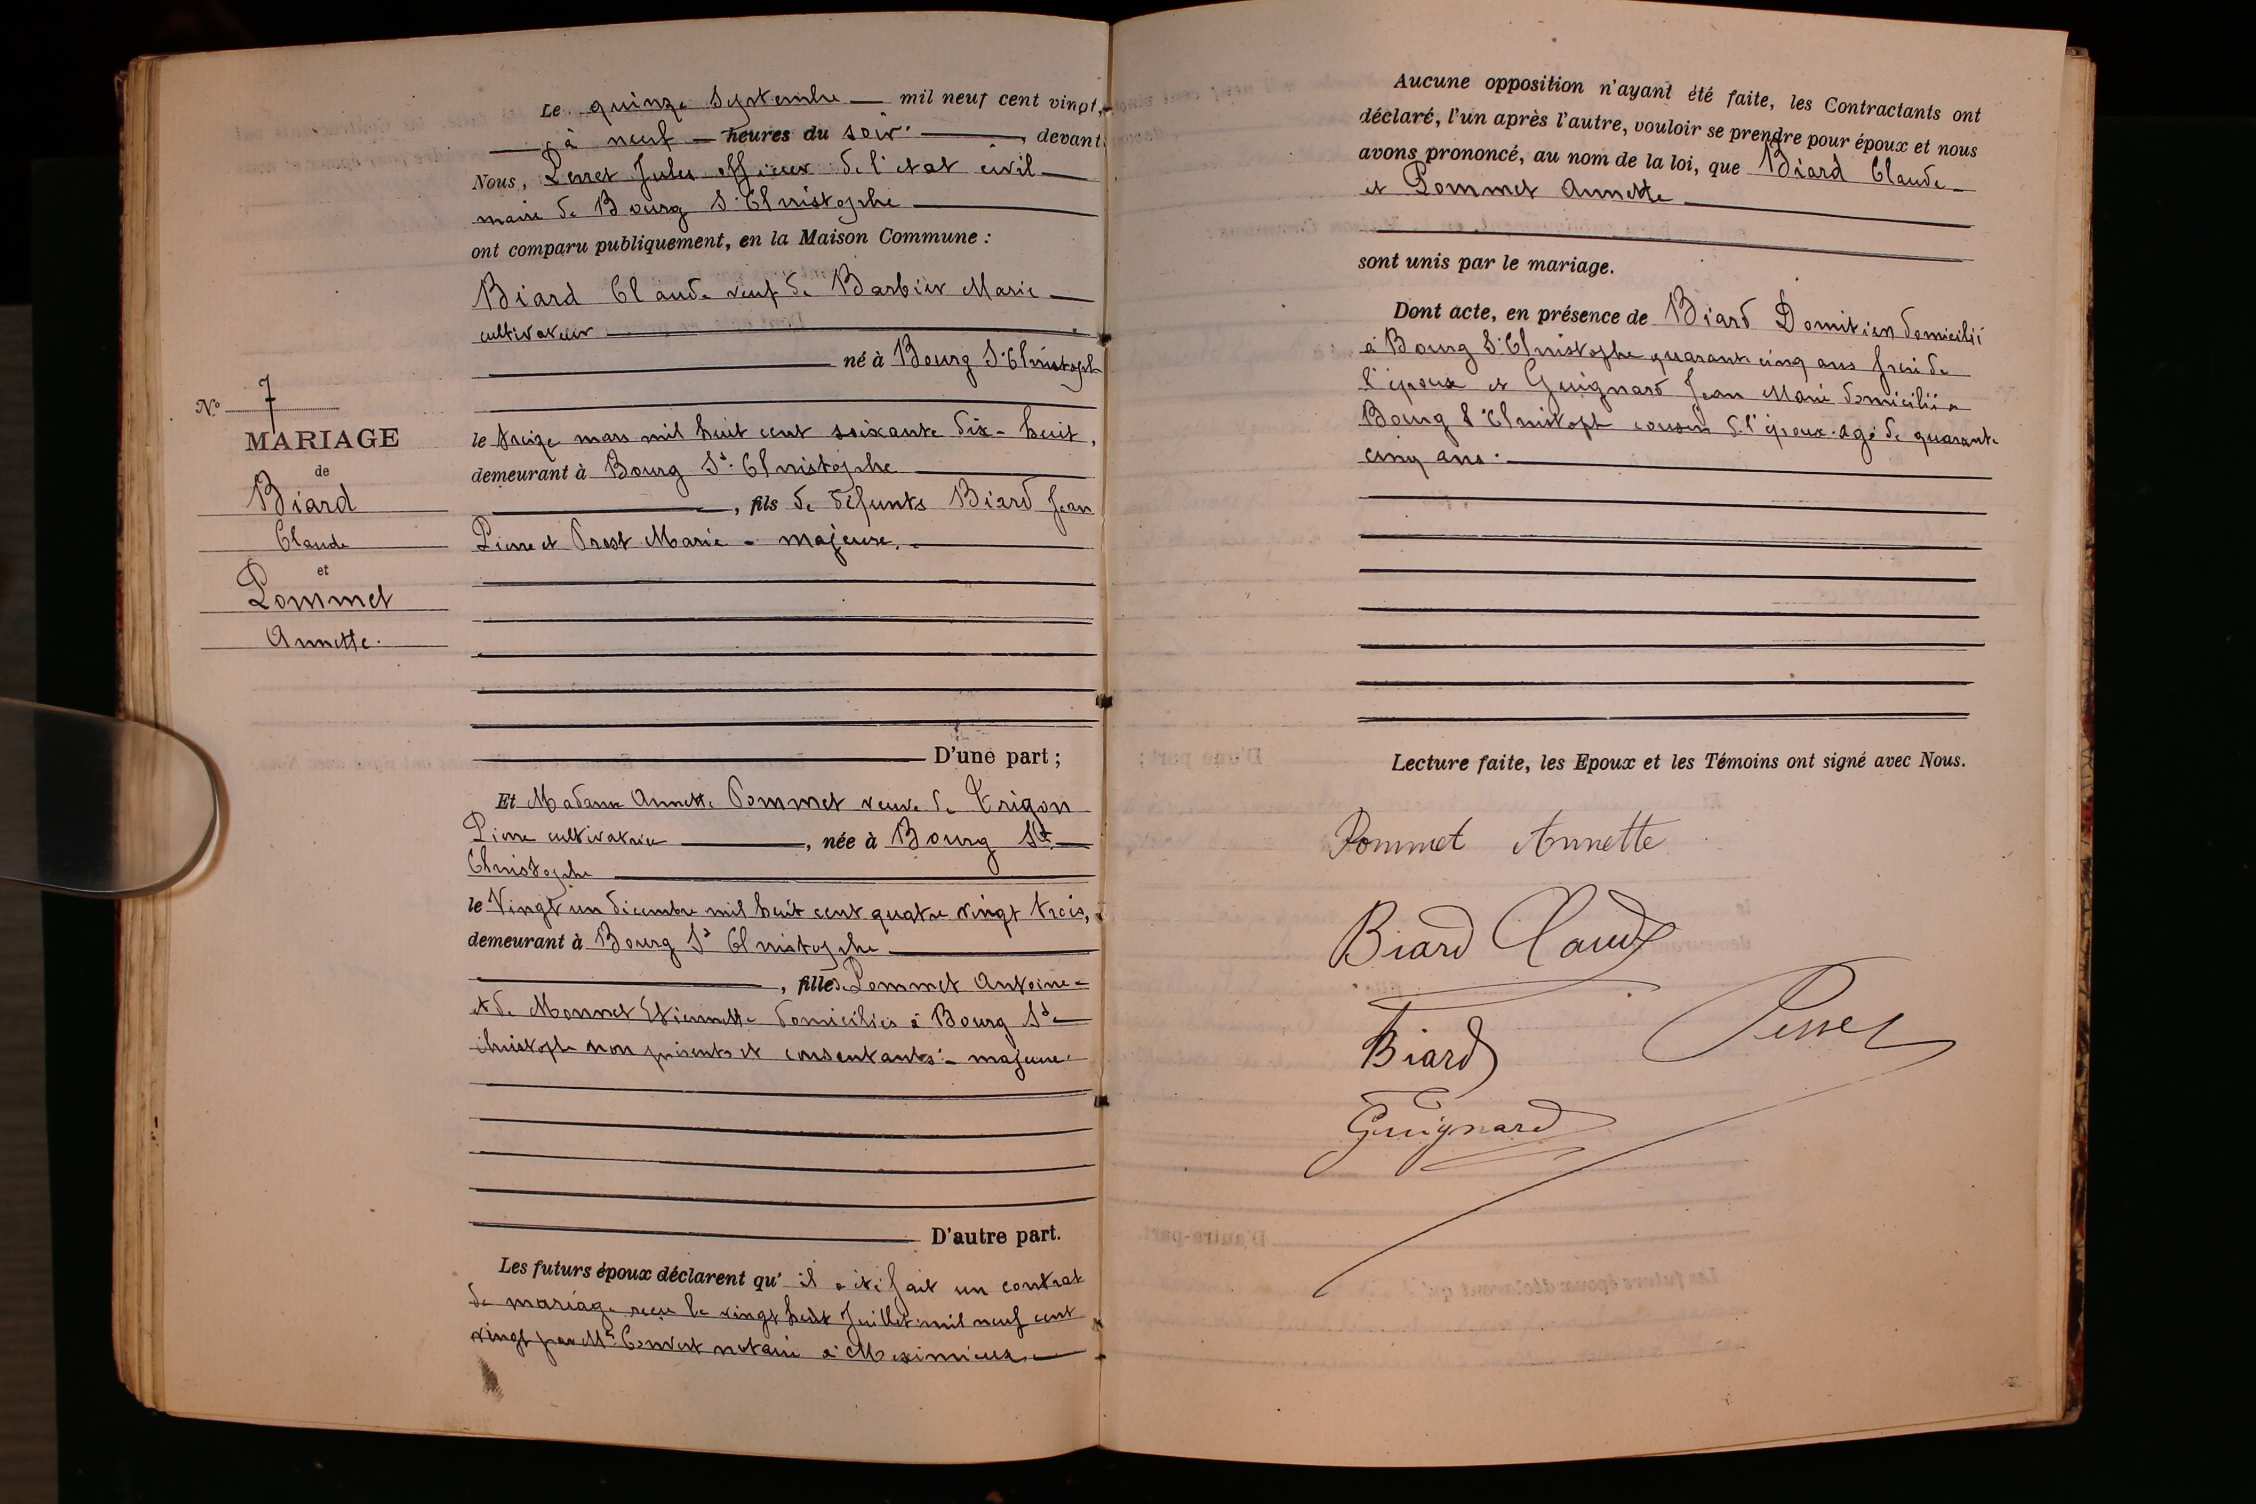 Le quinze Septembre mil neuf cent vingt,
à neuf heures du soir, devant
Nous, Perret Jules officier de l'etat civil
maire de Bourg St Christophe
ont comparu publiquement, en la Maison Commune :
Biard Claude veuf de Barbier Marie
cultivateur
né à Bourg St Christoph
le treize mars mil huit cent soixante dix-huit,
demeurant à Bourg St Christophe
, fils de défunts Biard Jean
Pierre et Prost Marie - majeure.
D'une part ;
Et Madame Annette Pommet veuve de Trigon
Pierre cultivatrice, née à Bourg St
Christophe
le Vingt un décembre mil huit cent quatre vingt trois,
demeurant à Bourg St Christophe
, fille de Pommet Antoine
et de Monnet Etiennette domiciliés à Bourg St
christophe non présents et consentants - majeure
D'autre part.
Les futurs époux déclarent qu' il a été fait un contrat
de mariage reçu le vingt huit Juillet mil neuf cent
vingt par Me Convert notaire à Meximieux
No 7
MARIAGE
de
Biard
Claude
et
Pommet
Annette.
Aucune opposition n'ayant été faite, les Contractants ont
déclaré, l'un après l'autre, vouloir se prendre pour époux et nous
avons prononcé, au nom de la loi, que Biard Claude
et Pommet Annette
sont unis par le mariage.
Dont acte, en présence de Biard Domitien domicilié
à Bourg St Christophe quarante cinq ans frère de
l'époux et Guignard Jean Marie domicilié a
Bourg St Christoph cousin de l'époux agé de quarante
cinq ans.
Lecture faite, les Epoux et les Témoins ont signé avec Nous.
Pommet Annette
Biard Claude
Perret
Biard
Guignard